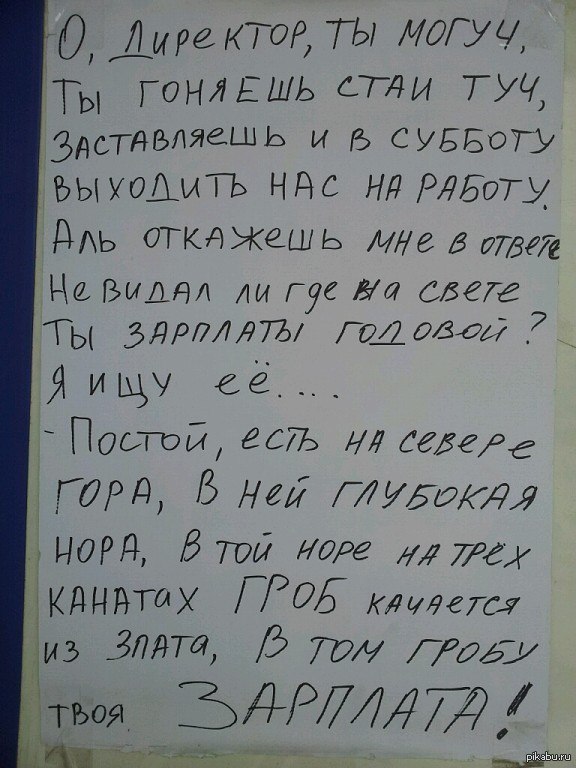 О, Директор, ты могуч,
Ты гоняешь стаи туч,
Заставляешь и в субботу
выходить нас на работу.
Аль откажешь мне в ответе
Не видал ли где на свете
Ты зарплаты годовой?
Я ищу её....
- Постой, есть на севере
гора, в ней глубокая
нора, в той норе на трёх
канатах ГРОБ качается
из злата, в том гробу
твоя ЗАРПЛАТА!
pikabu.ru